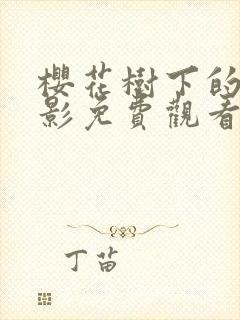 櫻花樹下的
影免費觀看
丁苗